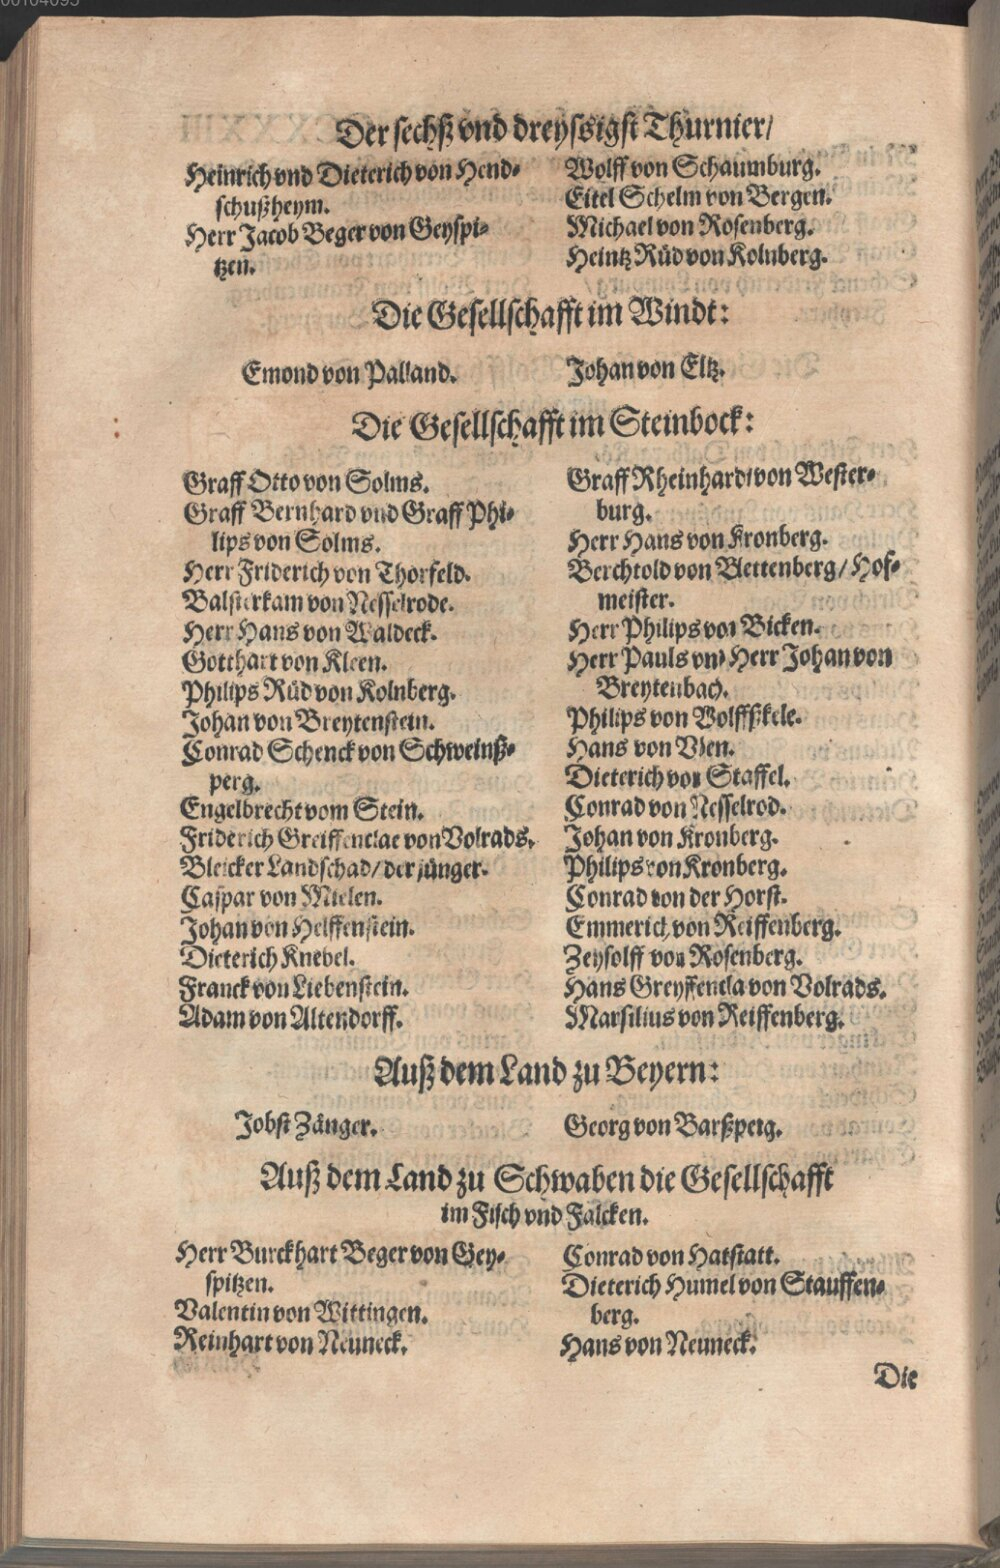 00104095
Der sechß vnd dreyssigst Thurnier/
Heinrich vnd Dieterich von Hend-
schußheym.
Herr Jacob Beger von Geyspi-
tzen.
Wolff von Schaumburg.
Eitel Schelm von Bergen.
Michael von Rosenberg.
Heintz Rüd von Kolnberg.
Die Gesellschafft im Windt:
Emond von Palland.
Johan von Eltz.
Die Gesellschafft im Steinbock:
Graff Otto von Solms.
Graff Bernhard vnd Graff Phi-
lips von Solms.
Herr Friderich von Thorfeld.
Balsterkam von Nesselrode.
Herr Hans von Waldeck.
Gotthart von Kleen.
Philips Rüd von Kolnberg.
Johan von Breytenstein.
Conrad Schenck von Schweinß-
perg.
Engelbrecht vom Stein.
Friderich Greiffenclae von Volrads.
Bleicker Landschad/ der jünger.
Caspar von Mielen.
Johan von Helffenstein.
Dieterich Knebel.
Franck von Liebenstein.
Adam von Altendorff.
Graff Rheinhardt von Wester-
burg.
Herr Hans von Kronberg.
Berchtold von Blettenberg/ Hof-
meister.
Herr Philips von Bicken.
Herr Pauls vnd Herr Johan von
Breytenbach.
Philips von Wolffßkele.
Hans von
Dieterich von Staffel.
Conrad von Nesselrod.
Johan von Kronberg.
Philips von Kronberg.
Conrad von der Horst.
Emmerich von Reiffenberg.
Zeysolff von Rosenberg.
Hans Greyffencla von Volrads.
Marsilius von Reiffenberg.
Auß dem Land zu Beyern:
Jobst Zänger.
Georg von Barßperg.
Auß dem Land zu Schwaben die Gesellschafft
im Fisch vnd Falcken.
Herr Burckhart Beger von Gey-
spitzen.
Valentin von Wittingen.
Reinhart von Neuneck.
Conrad von Hatstatt.
Dieterich Humel von Stauffen-
berg.
Hans von Neuneck.
Die